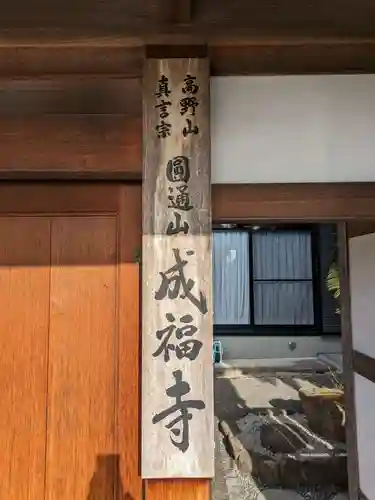 高野山
真言宗
圓通山
成福寺